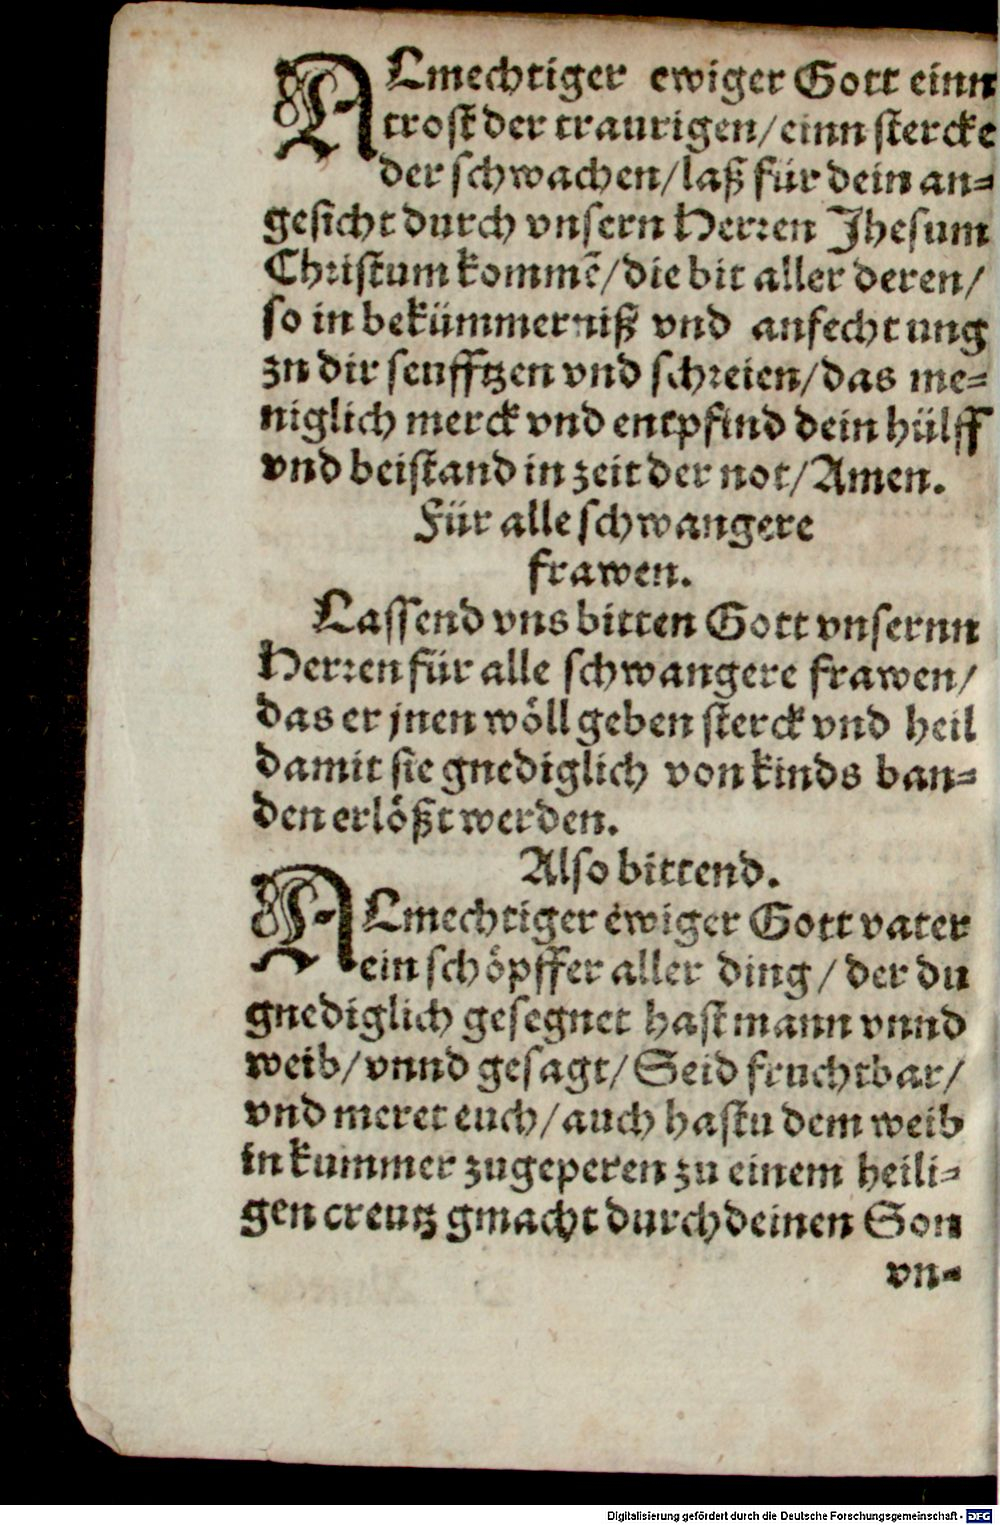 ALmechtiger ewiger Gott einn
trost der traurigen/einn stercke
der schwachen/laß für dein an=
gesicht durch vnsern Herren Jhesum
Christum kommẽ/die bit aller deren/
so in bekümmerniß vnd anfechtung
zu dir seufftzen vnd schreien/das me=
niglich merck vnd entpfind dein hülff
vnd beistand in zeit der not/Amen.
Für alle schwangere
frawen.
Lassend vns bitten Gott vnsernn
Herren für alle schwangere frawen/
das er jnen wöll geben sterck vnd heil
damit sie gnediglich von kinds ban=
den erlößt werden.
Also bittend.
ALmechtiger ewiger Gott vater
ein schöpffer aller ding/der du
gnediglich gesegnet hast mann vnnd
weib/vnnd gesagt/Seid fruchtbar/
vnd meret euch/auch hastu dem weib
in kummer zugeperen zu einem heili=
gen creutz gmacht durch deinen Son
vn=
Digitalisierung gefördert durch die Deutsche Forschungsgemeinschaft - DFG